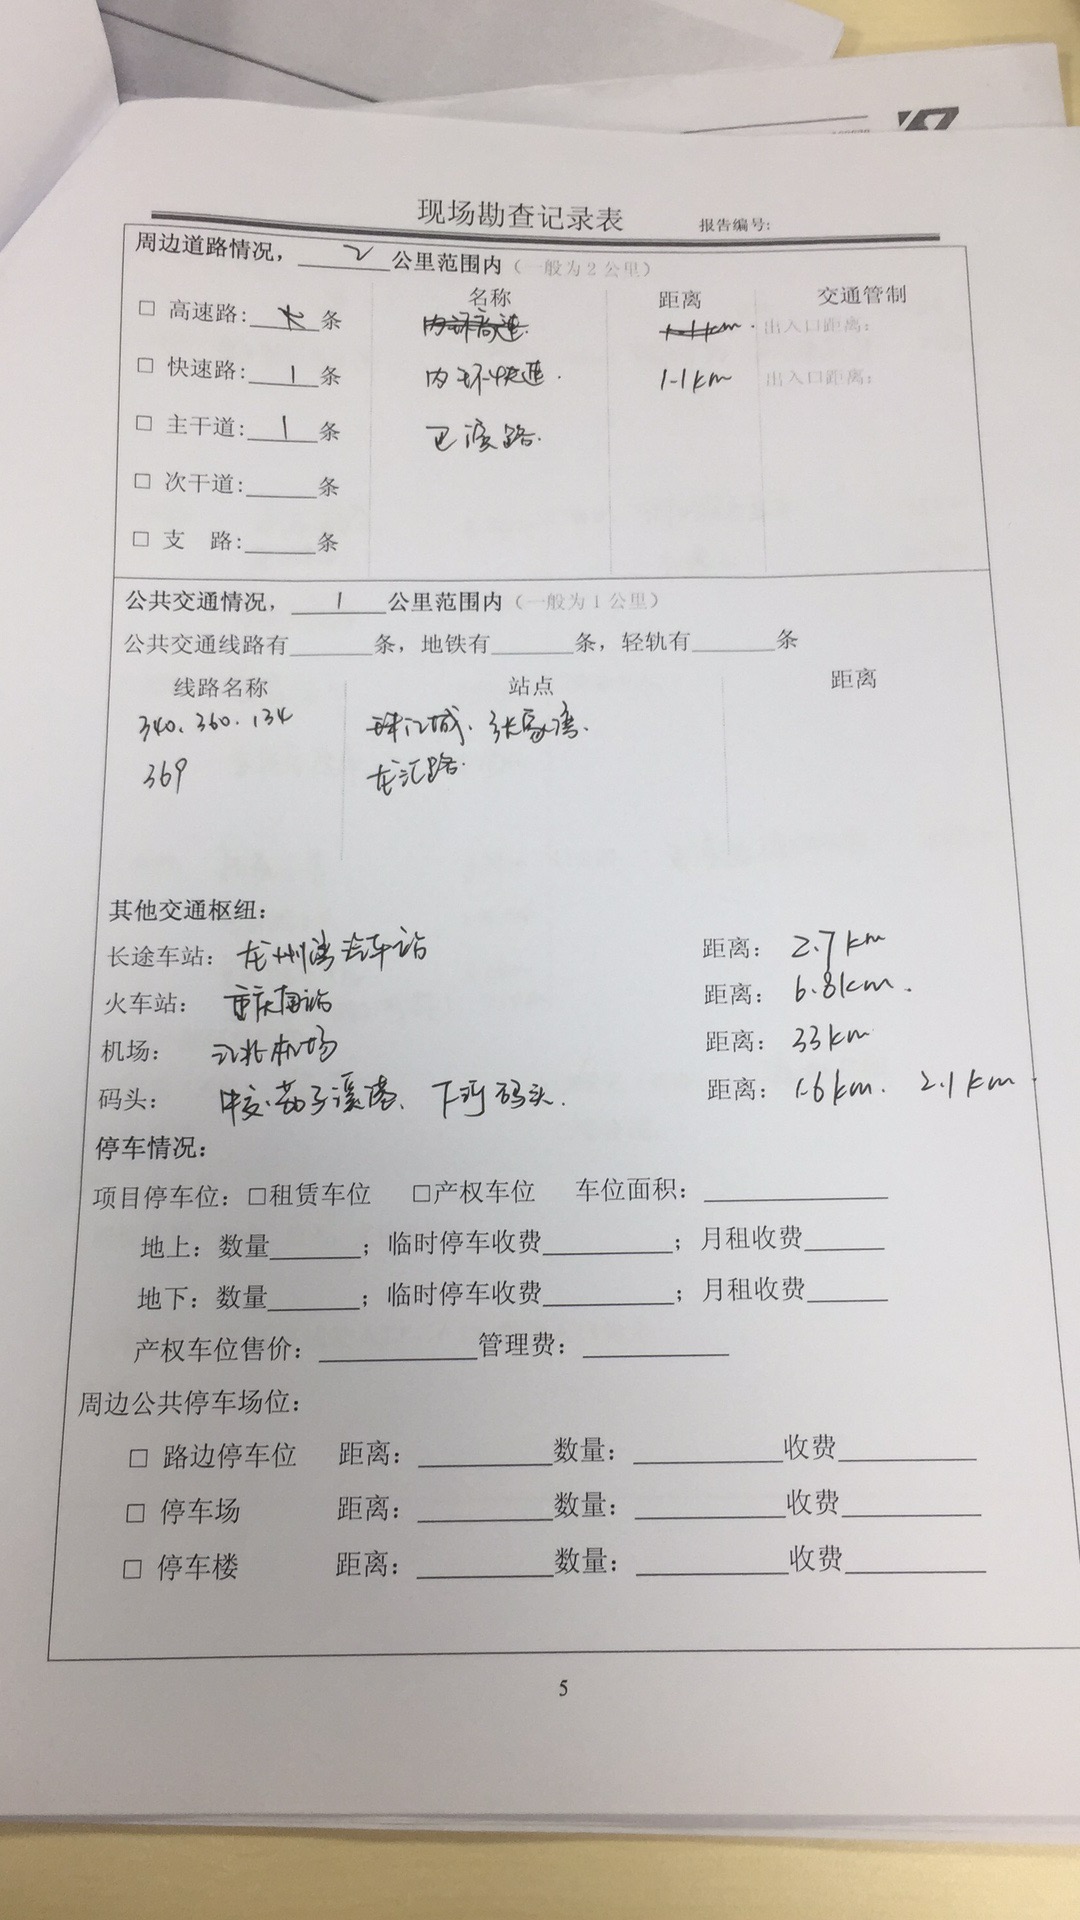 现场勘查记录表 报告编号:
周边道路情况，2公里范围内（一般为2公里）
名称 距离 交通管制
□ 高速路:____条 内环高速. 1.1km. 出入口距离:
□ 快速路:1条 内环快速. 1.1km 出入口距离:
□ 主干道:1条 巴滨路.
□ 次干道:____条
□ 支 路:____条
公共交通情况，1公里范围内（一般为1公里）
公共交通线路有______条，地铁有______条，轻轨有______条
线路名称 站点 距离
340、360、134 珠江城、张家湾.
369 龙汇路.
其他交通枢纽:
长途车站: 龙洲湾汽车站 距离: 2.7km
火车站: 重庆南站 距离: 6.8km.
机场: 江北机场 距离: 33km
码头: 中交茄子溪港、下河码头. 距离: 1.6km. 2.1km.
停车情况:
项目停车位: □租赁车位 □产权车位 车位面积: ______
地上: 数量______; 临时停车收费______; 月租收费______
地下: 数量______; 临时停车收费______; 月租收费______
产权车位售价: ______管理费: ______
周边公共停车场位:
□ 路边停车位 距离: ______数量: ______收费______
□ 停车场 距离: ______数量: ______收费______
□ 停车楼 距离: ______数量: ______收费______
5